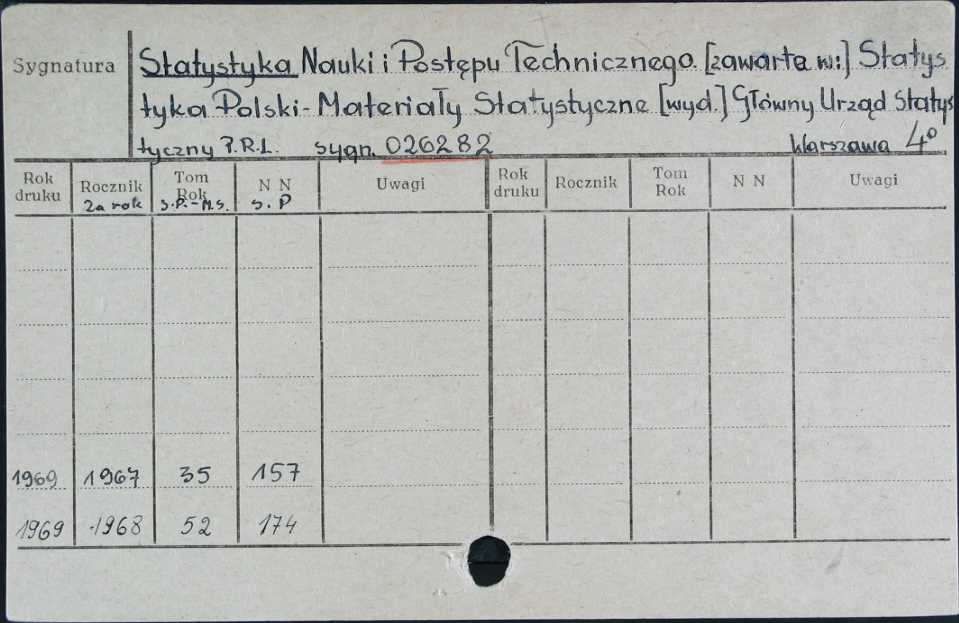 Sygnatura
Statystyka Nauki i Postępu Technicznego [zawarte w:] Statys
tyka Polski - Materiały Statystyczne [wyd.] Główny Urząd Statys
tyczny P.R.L. sygn. 026282 Warszawa 4°
Rok druku Rocznik Tom Rok N N Uwagi Rok druku Rocznik Tom Rok N N Uwagi
za rok S.P.-M.S. S.P
1969 1967 35 157
1969 1968 52 174